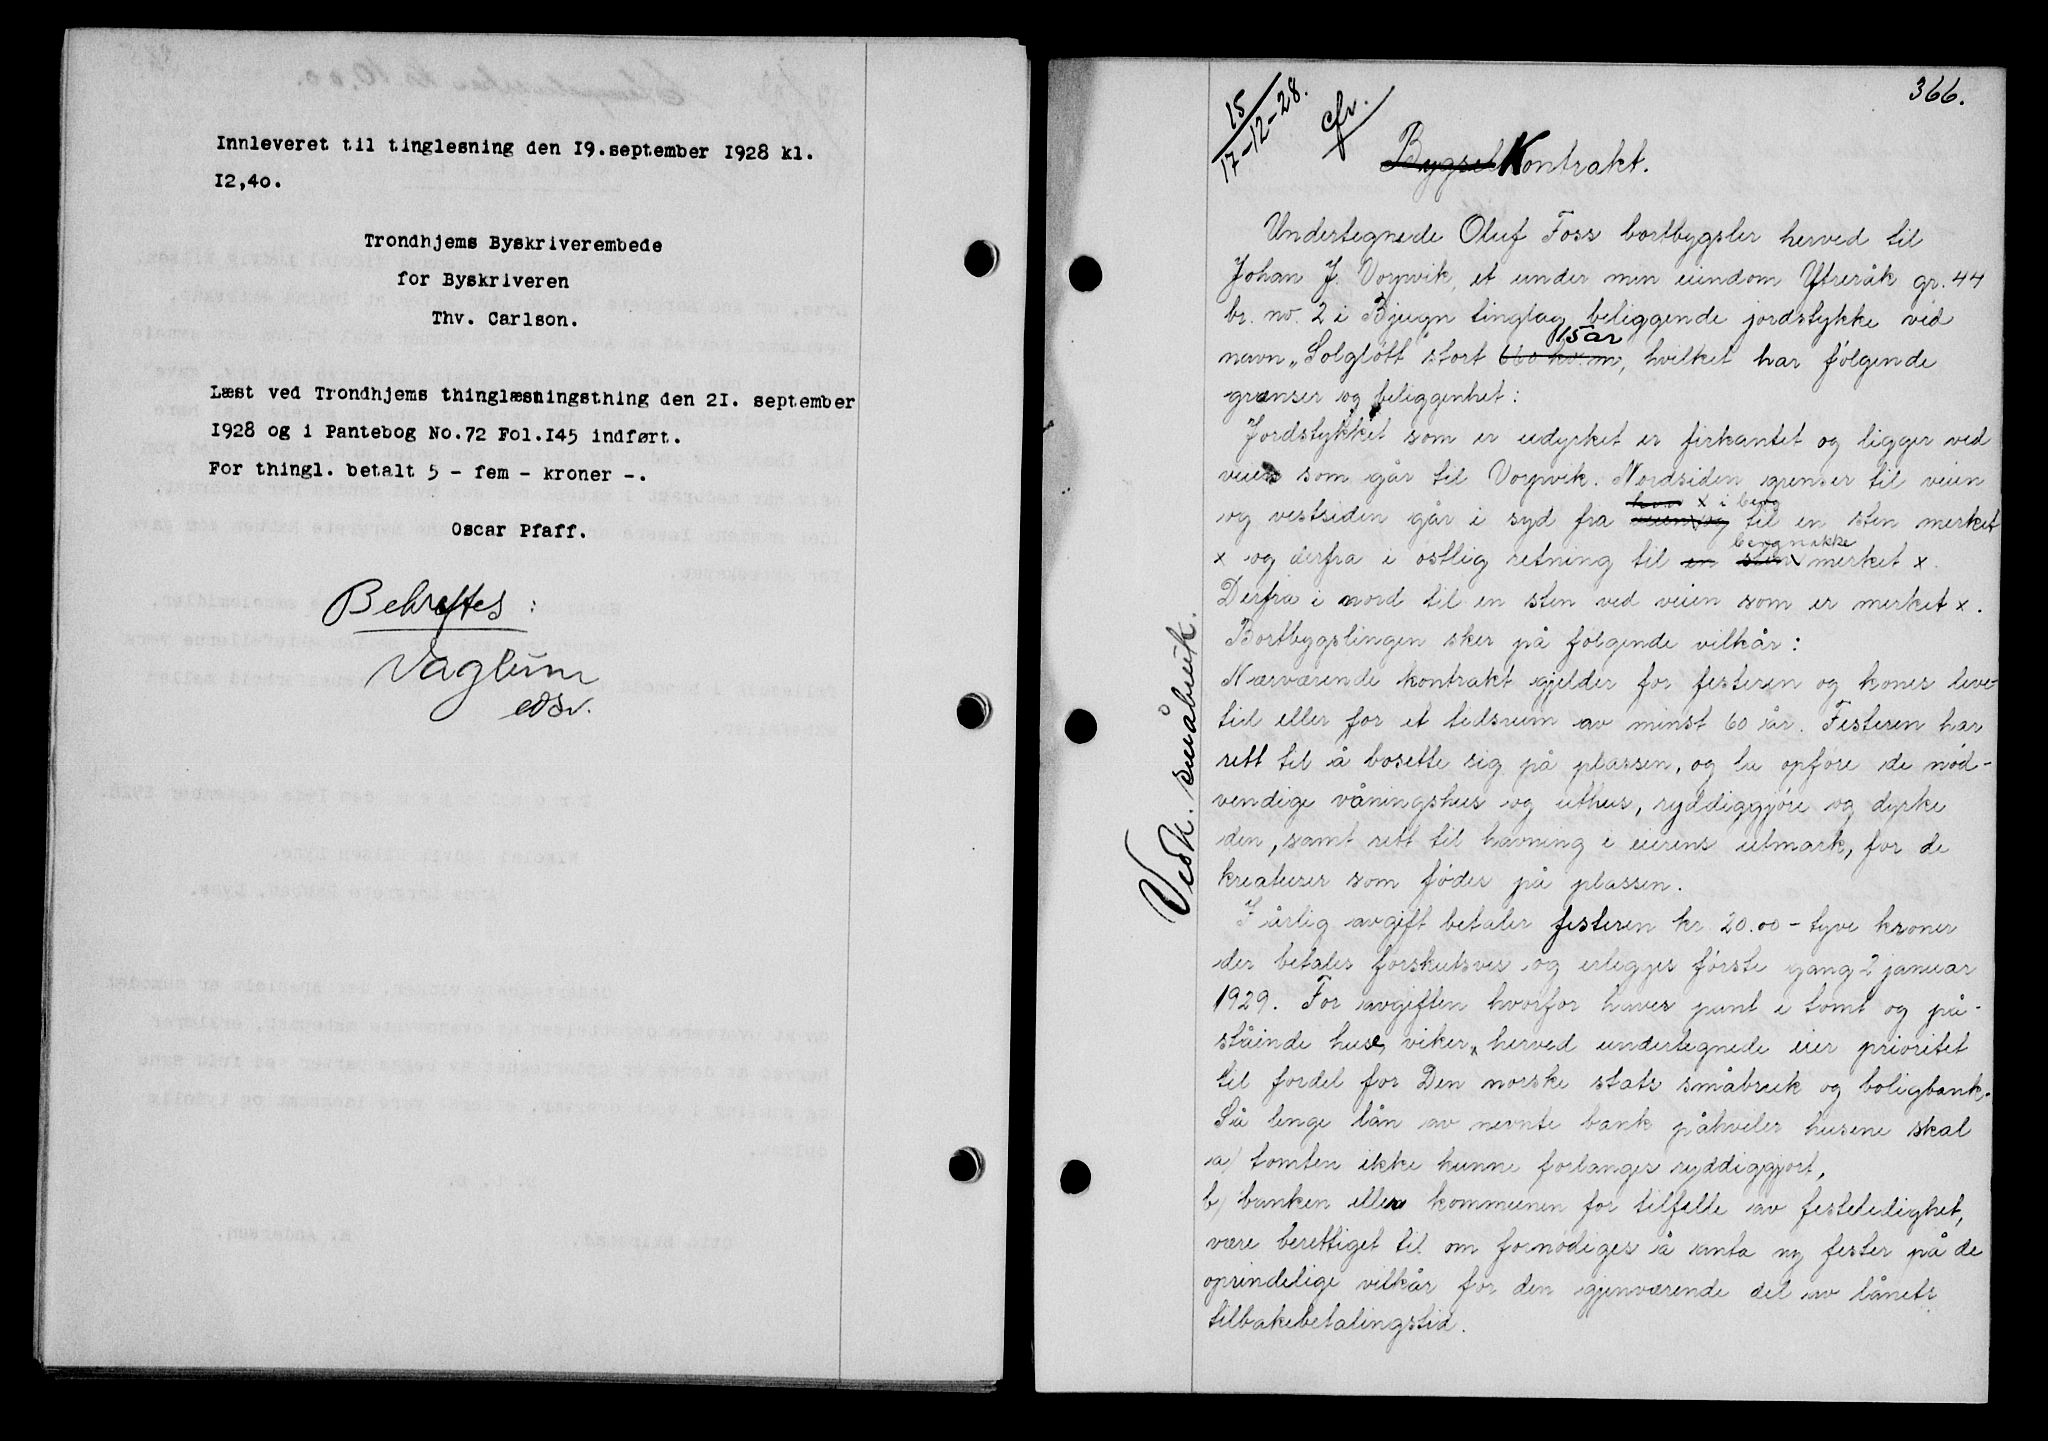 Innleveret til tinglesning den 19.september 1928 kl.
12,40.
Trondhjems Byskriverembede
for Byskriveren
Thv. Carlson.
Læst ved Trondhjems thinglæsningsthing den 21. september
1928 og i Pantebog No.72 Fol.145 indført.
For thingl. betalt 5 - fem - kroner -.
Oscar Pfaff.
Bekreftes:
Vaglum
edsv.
366.
15/17-12-28.
cfr.
Bygsel Kontrakt.
Undertegnede Oluf Foss bortbygsler herved til
Johan J. Vorpvik, et under min eiendom Ytreråk gr. 44
br. no. 2 i Bjugn tinglag beliggende jordstykke ved
15 ar
navn „Solgløtt" stort kv. m, hvilket har følgende
grænser og beliggenhet:
Jordstykket som er udyrket er firkantet og ligger ved
veien som går til Vorpvik. Nordsiden grenser til veien
x i berg
og vestsiden går i syd fra veien og til en sten merket
bergnakke
x og derfra i østlig retning til en sten x merket x.
Derfra i nord til en sten ved veien som er merket x.
Bortbygslingen skjer på følgende vilkår:
Nærværende kontrakt gjelder for festeren og kones leve-
tid eller for et tidsrum av minst 60 år. Festeren har
rett til å bosette sig på plassen, og la opføre de nød-
vendige våningshus og uthus, ryddiggjøre og dyrke
den, samt rett til havning i eierens utmark, for de
kreaturer som fødes på plassen.
I årlig avgift betaler festeren kr. 20.00 - tyve kroner
der betales forskutsvis og erlegges første gang 2 januar
1929. For avgiften hvorfor haves pant i tomt og på-
ståinde huse, viker herved undertegnede eier prioritet
til fordel for Den norske stats småbruk og boligbank.
Så lenge lån av nevnte bank påhviler husene skal
a) tomten ikke kunne forlanges ryddiggjort,
b) banken eller kommunen for tilfelle av festeledighet,
være berettiget til om fornødiges å anta ny fester på de
oprindelige vilkår for den gjenværende del av lånets
tilbakebetalingstid.
Vedk. småbruk.